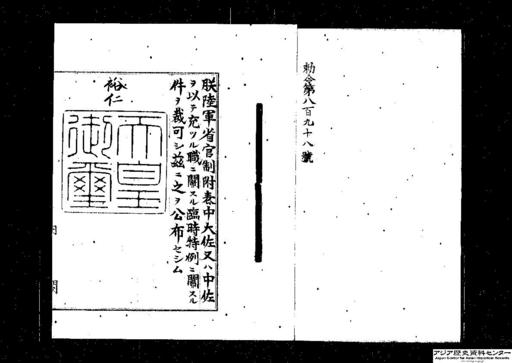 勅令第八百九十八號
朕陸軍省官制附表中大佐又ハ中佐
ヲ以テ充ツル職ニ關スル臨時特例ニ關スル
件ヲ裁可シ茲ニ之ヲ公布セシム
裕仁
天皇
御璽
アジア歴史資料センター
Japan Center for Asian Historical Records